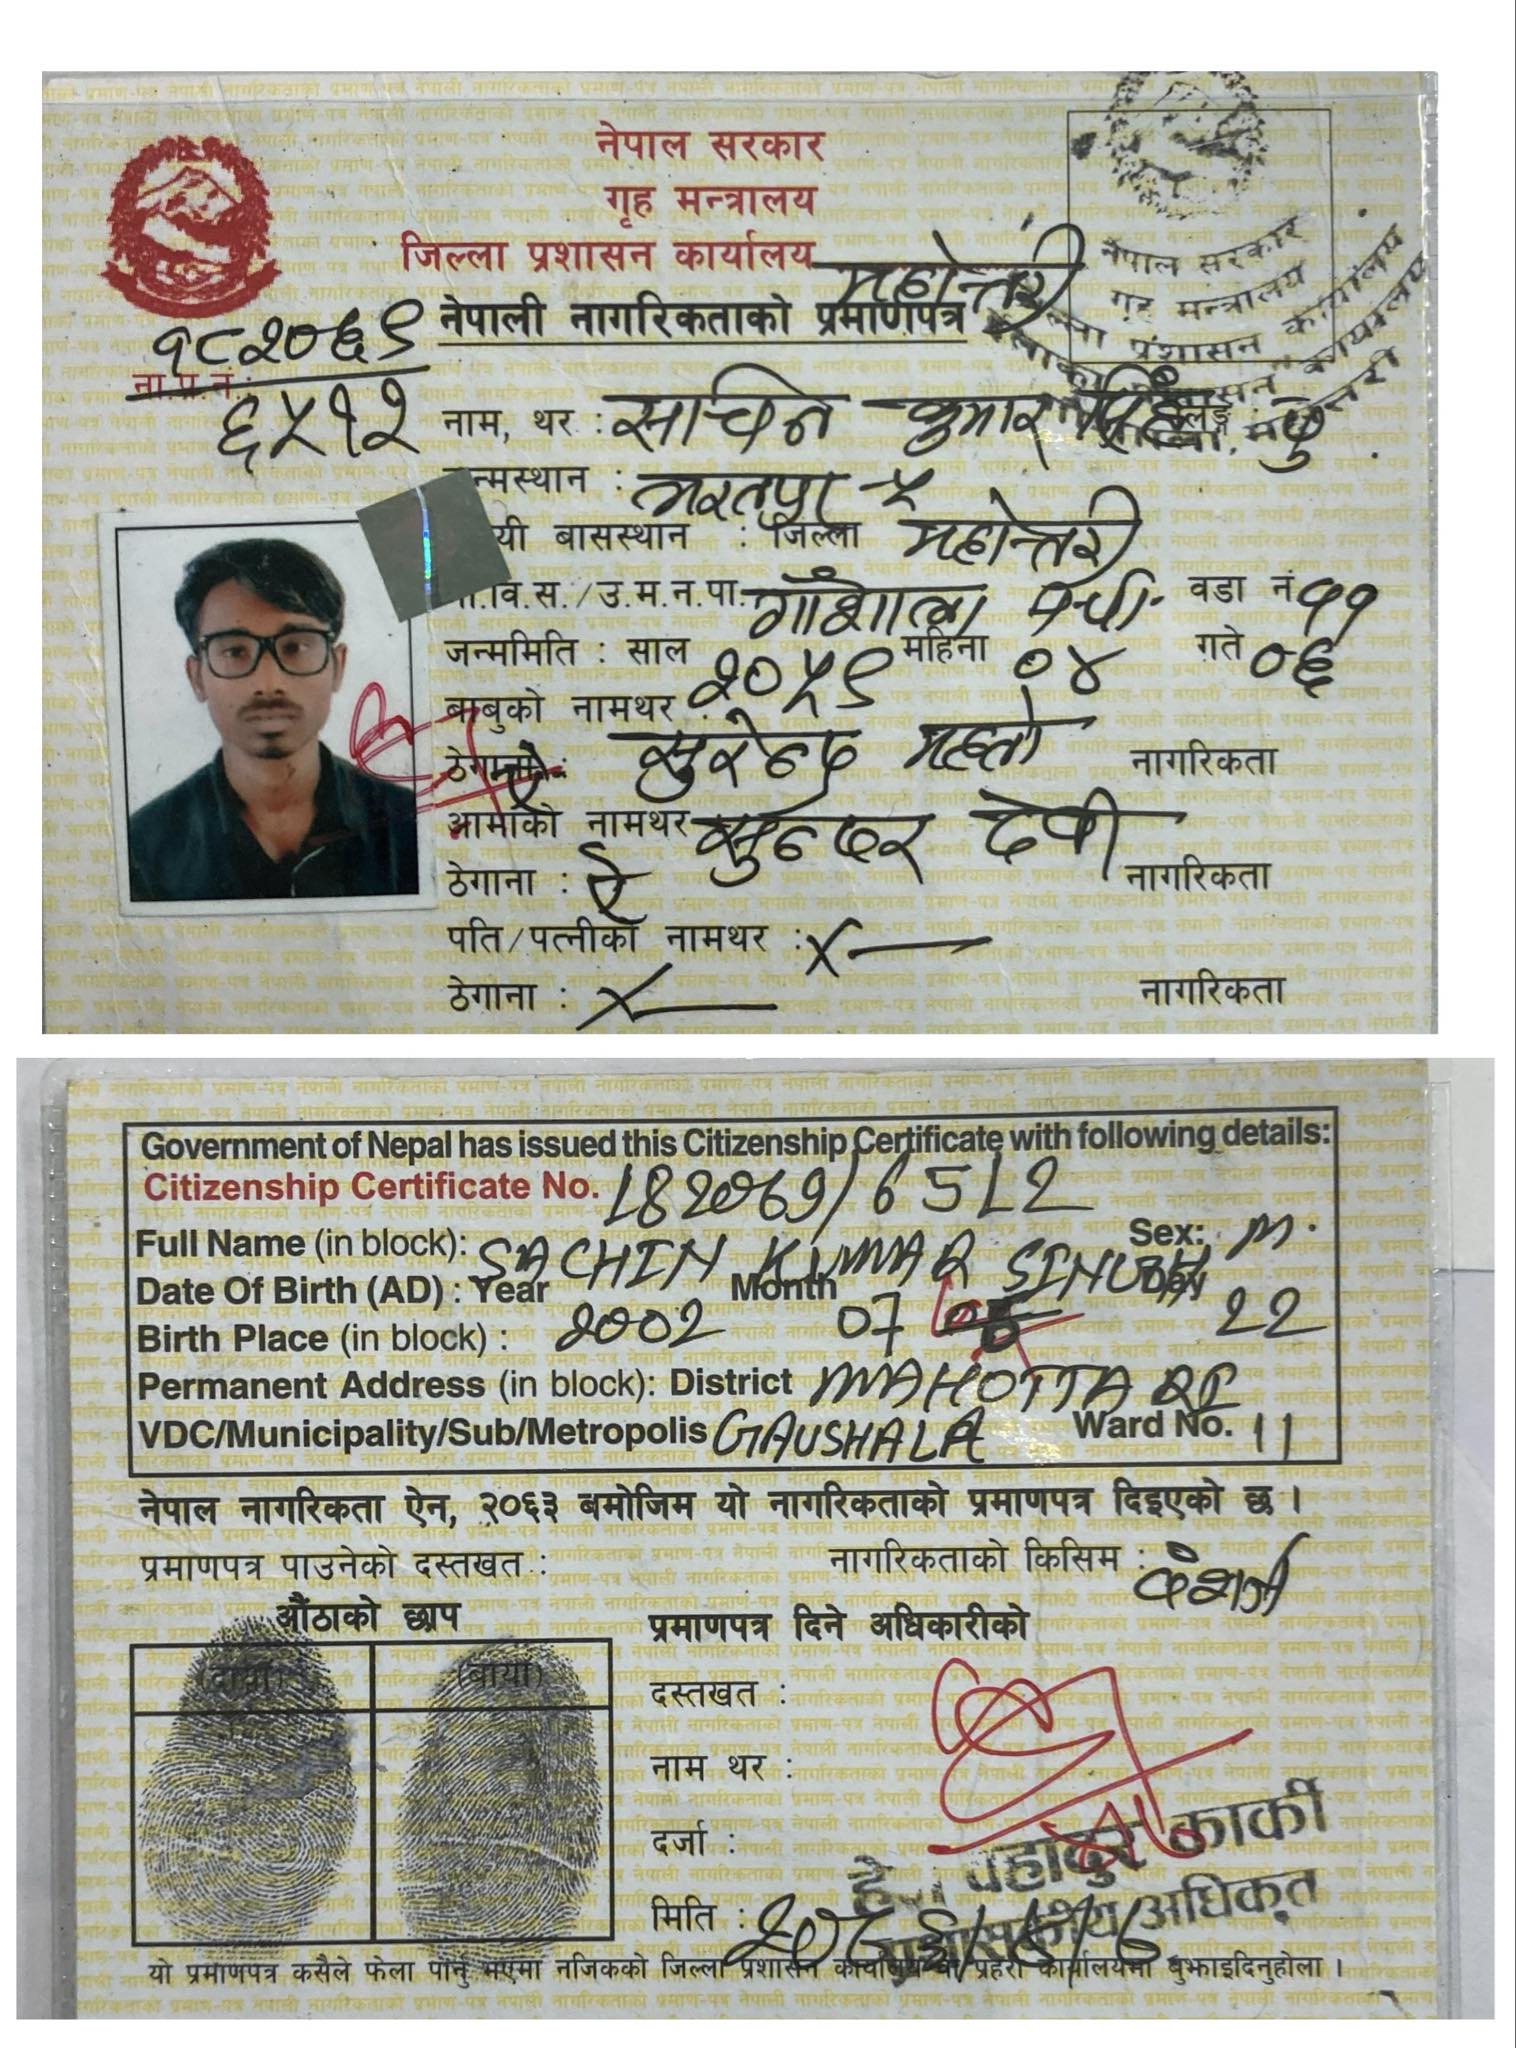 नेपाल सरकार
गृह मन्त्रालय
जिल्ला प्रशासन कार्यालय महोत्तरी
नेपाली नागरिकताको प्रमाणपत्र
नेपाल सरकार
गृह मन्त्रालय
प्रशासन कार्यालय
ना.प्र.नं.: १८२०६९
६५१२
नाम, थर : सचिन कुमार सिंह लिङ्ग : पु
न्मस्थान : भरतपुर ५
यी बासस्थान : जिल्ला महोत्तरी
वि.स./उ.म.न.पा. गौशाला वडा नं ११
जन्ममिति : साल २०५९ महिना ०४ गते ०६
बाबुको नामथर सुरेन्द्र महतो
ठेगाना : ऐ नागरिकता
आमाको नामथर सुन्दर देवी
ठेगाना : ऐ नागरिकता
पति/पत्नीको नामथर : X—
ठेगाना : X— नागरिकता
Government of Nepal has issued this Citizenship Certificate with following details:
Citizenship Certificate No. 182069/6512
Full Name (in block): SACHIN KUMAR SINGH Sex: M.
Date Of Birth (AD) : Year 2002 Month 07 Day 22
Birth Place (in block) :
Permanent Address (in block): District MAHOTTARI
VDC/Municipality/Sub/Metropolis GAUSHALA Ward No. 11
नेपाल नागरिकता ऐन, २०६३ बमोजिम यो नागरिकताको प्रमाणपत्र दिइएको छ ।
प्रमाणपत्र पाउनेको दस्तखत : नागरिकताको किसिम : वंशज
औंठाको छाप
(दायाँ) (बायाँ)
प्रमाणपत्र दिने अधिकारीको
दस्तखत :
नाम थर :
दर्जा : बहादुर कार्की
प्रशासकीय अधिकृत
मिति :
यो प्रमाणपत्र कसैले फेला पार्नु भएमा नजिकको जिल्ला प्रशासन कार्यालय वा प्रहरी कार्यालयमा बुझाइदिनुहोला ।